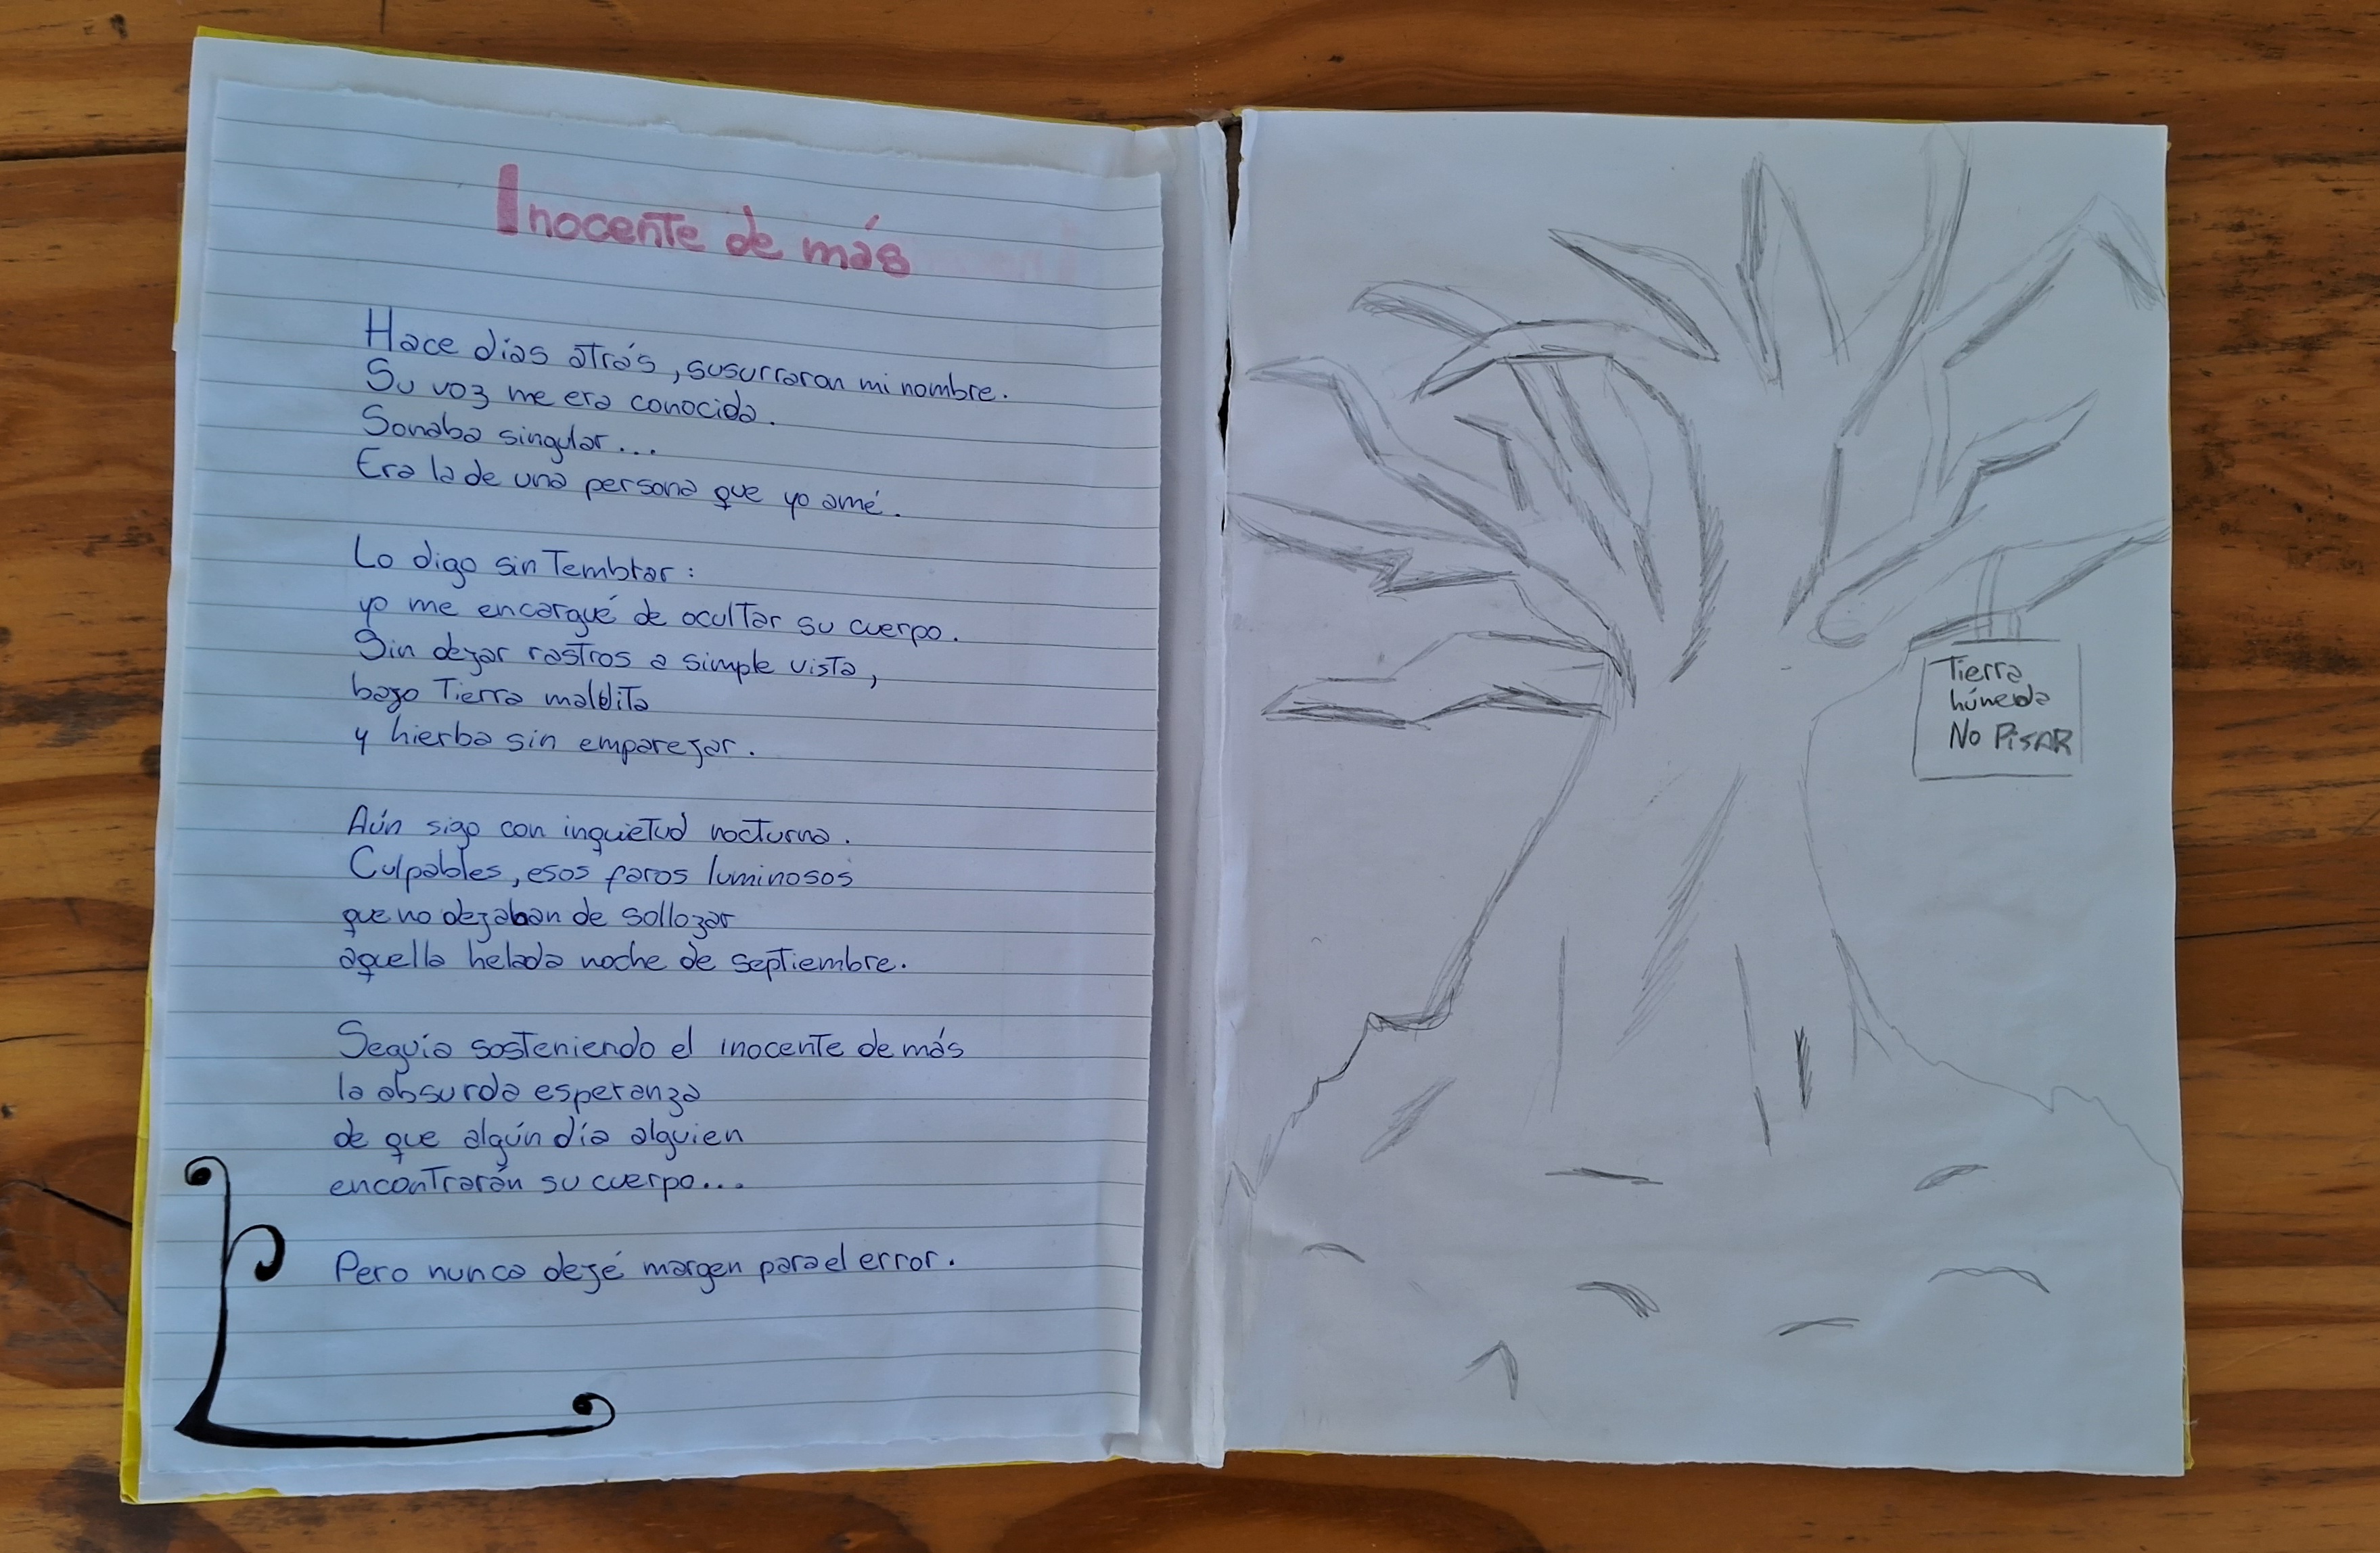 Inocente de más
Hace días atrás, susurraron mi nombre.
Su voz me era conocida.
Sonaba singular...
Era la de una persona que yo amé.
Lo digo sin Temblar:
yo me encargué de ocultar su cuerpo.
Sin dejar rastros a simple vista,
bajo Tierra maldita
y hierba sin emparejar.
Aún sigo con inquietud nocturna.
Culpables, esos faros luminosos
que no dejaban de sollozar
aquella helada noche de septiembre.
Seguía sosteniendo el inocente de más
la absurda esperanza
de que algún día alguien
encontrarán su cuerpo...
Pero nunca dejé margen para el error.
Tierra
húmeda
No PISAR